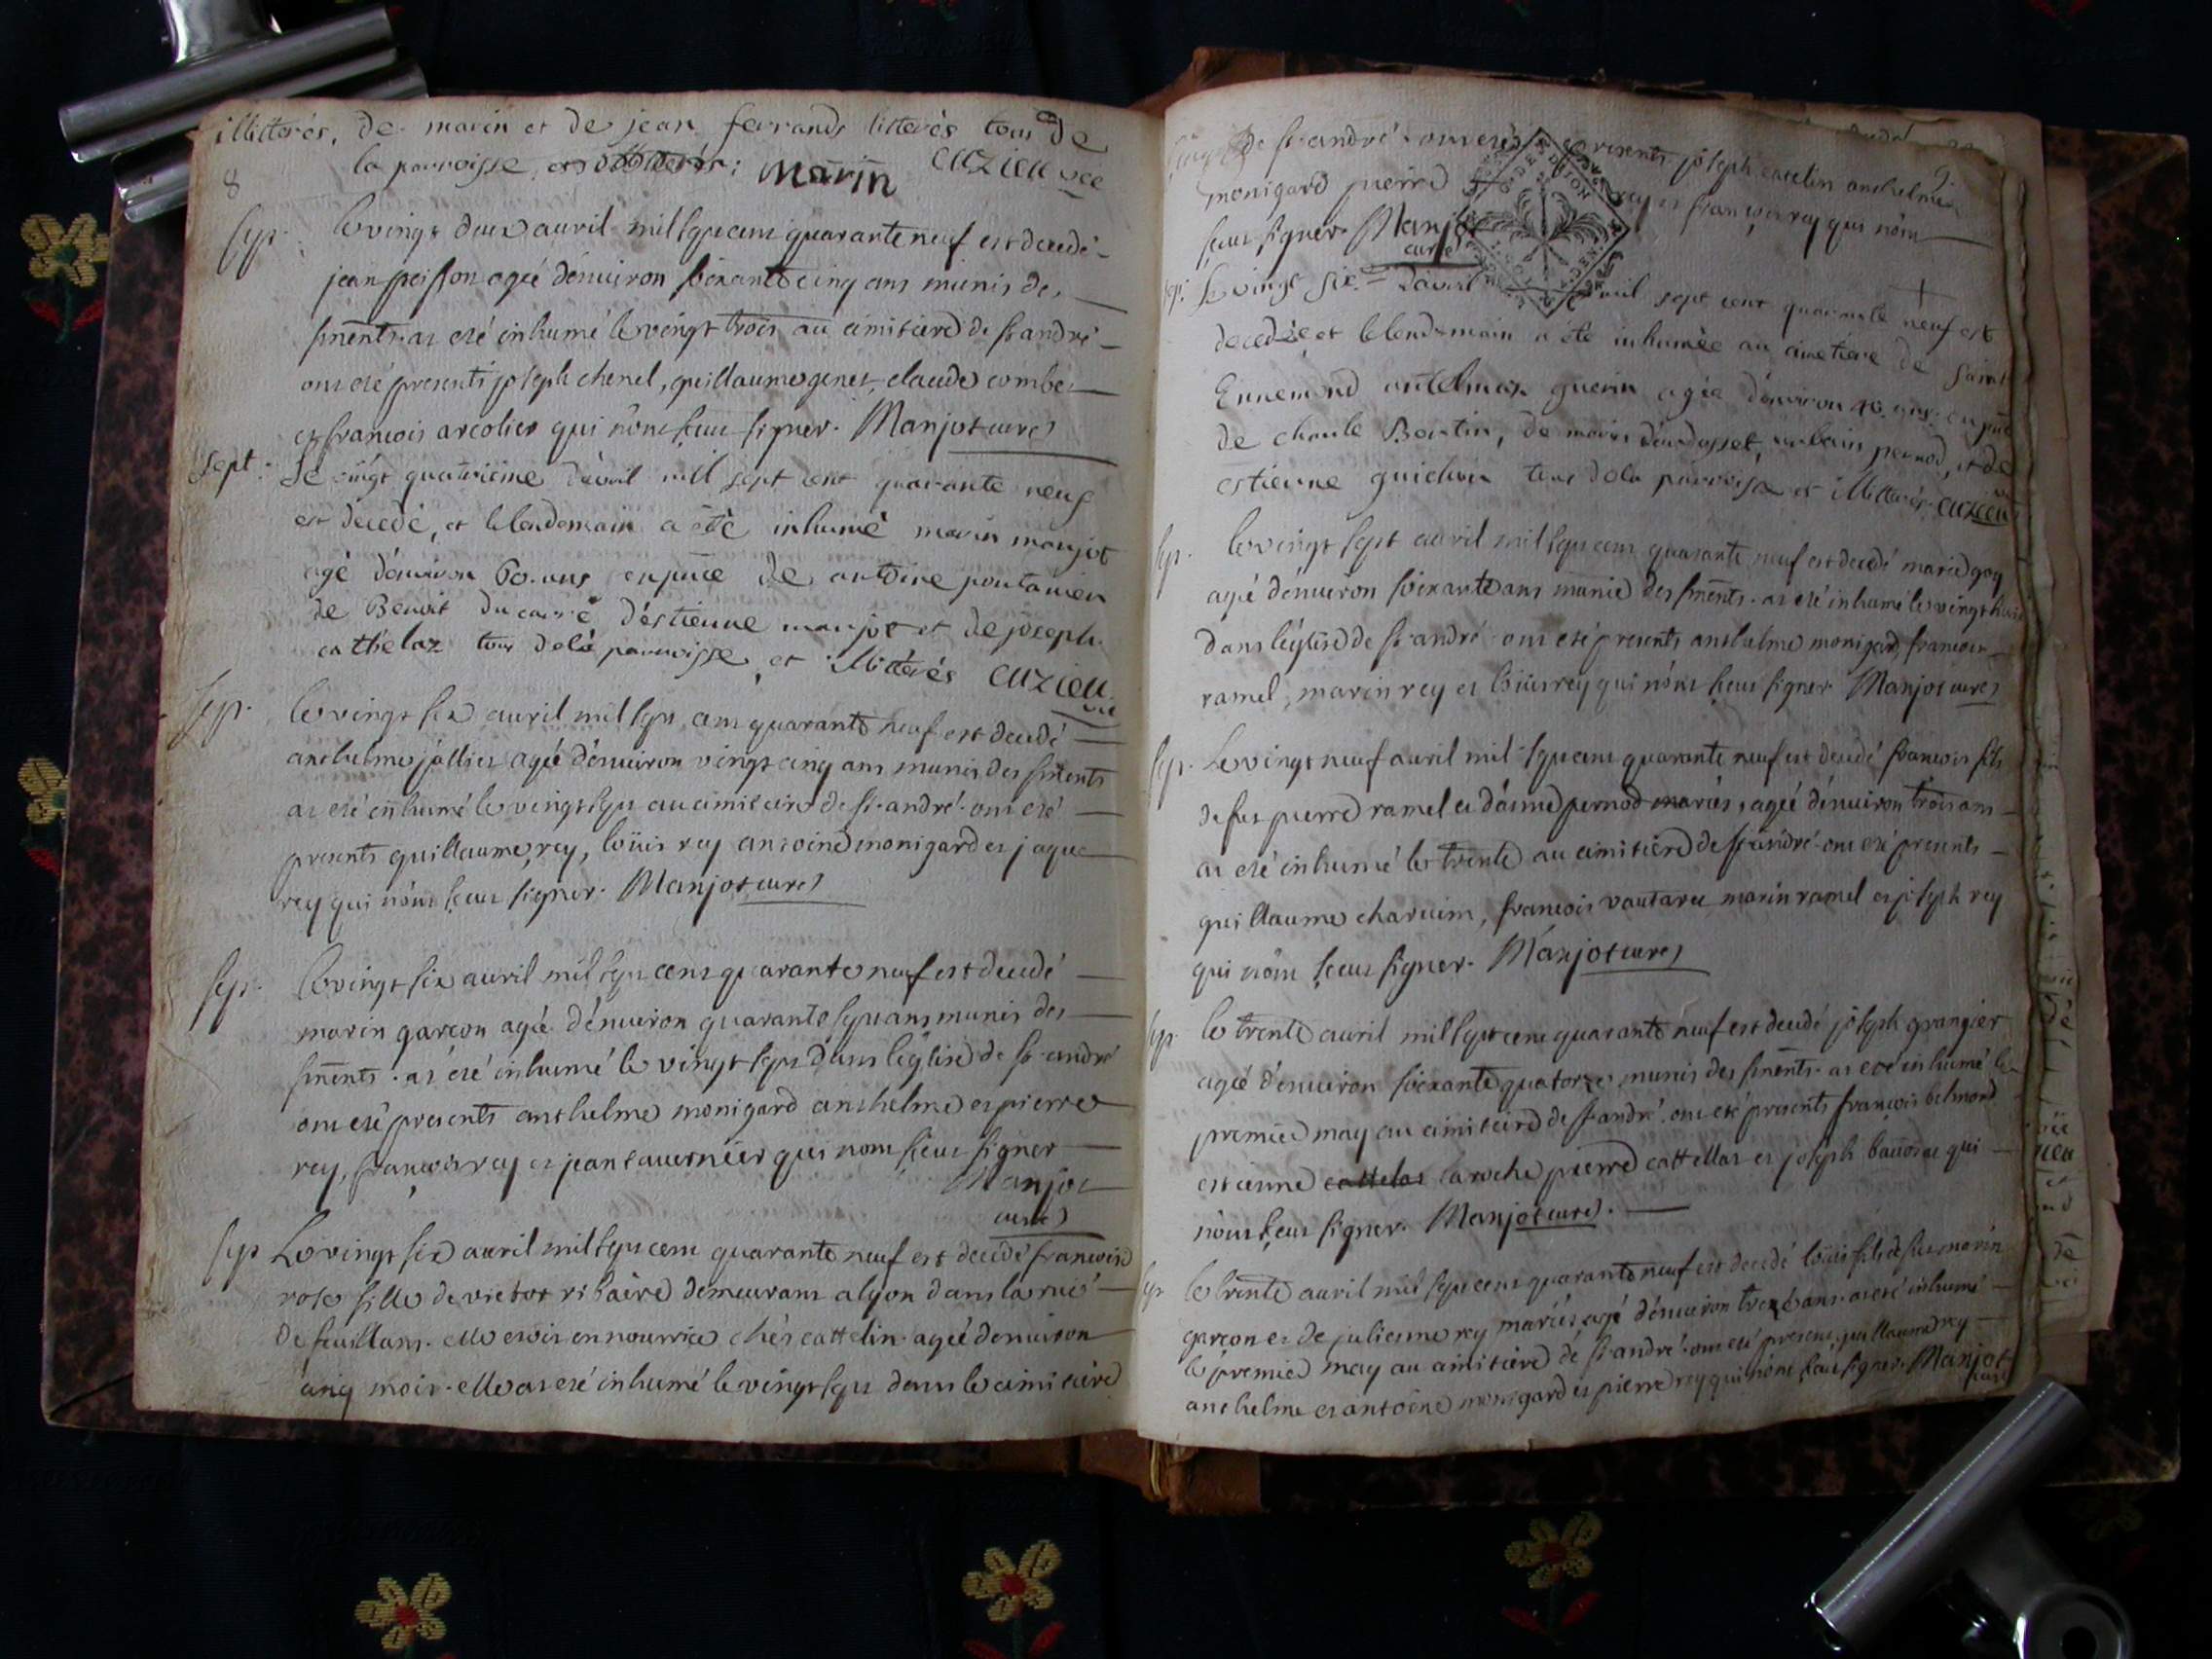 illitterés, de marin et de jean ferrands litterés tous de
la parroisse, et : Marin cuzieu vce
8
sep. le vingt deux avril mil sept cens quarante neuf est decedé
jean poisson ageé d'enuiron soixante cinq ans munis des
smēnts. at eté inhumé le vingt trois au cimitiere de st andré
ont eté presents joseph chenel, guillaume genet, claude combe
et francois arcolier qui n'ont sceut signer. Manjot curé
sept. Le vingt quatrieme d'avril mill sept cent quarante neuf
est decedé, et le lendemain a été inhumé marin manjot
agé d'enuiron 60. ans en pnce de antoine pontanier
de Benoit du carré d'estienne manjot et de joseph
cathelaz tous de la parroisse, et illitterés cuzieu
vce
sep. le vingt six avril mil sept cens quarante neuf est decedé
anthelme jallier ageé d'enuiron vingt cinq ans munis des smēnts
at eté inhumé le vingt sept au cimitiere de st. andré. ont eté
presents guillaume rey, loüis rey antoine monigard et jaque
rey qui n'ont sceut signer. Manjot curé
sep. le vingt six avril mil sept cens quarante neuf est decedé
marin garcon ageé d'enuiron quarante sept ans munis des
smēnts. at eté inhumé le vingt sept dans l'eglise de st andré
ont eté presents anthelme monigard anthelme et pierre
rey, francois rey et jean tauernier qui n'ont sceut signer
Manjot
curé
sep Le vingt six avril mil sept cens quarante neuf est decedé francoise
rose fille de victor ribaire demeurant a lyon dans la rue
de feuillans. elle etoit en nourrice chés cattelin. ageé d'enuiron
cinq mois. elle at eté inhumé le vingt sept dans le cimitiere
9.
de st. andré. ont eté presents joseph cattelin anthelme
monigard pierre rey et francois rey qui n'ont
sceut signer. Manjot
curé
sep. Le vingt six.me d'avril mil sept cent quarante neuf est
decedée et le lendemain a été inhumée au cimetiere de saint
Ennemond antelmaz guerin agée d'enuiron 40. ans. en pnce
de charle Bertin, de marin urbain pernod, et de
estienne guichon tous de la parroisse et illitterés. cuzieu
sep. le vingt sept avril mil sept cens quarante neuf est decedé marie goy
ageé d'enuiron soixante ans munie des smēnts. at eté inhumé le vingt huit
dans l'eglise de st. andré. ont eté presents anthelme monigard, francois
ramel, marin rey et loüis rey qui n'ont sceut signer. Manjot curé
sep. Le vingt neuf avril mil sept cens quarante neuf est decedé francois fils
de feu pierre ramel et d'aimé pernod mariés, ageé d'enuiron trois ans
at eté inhumé le trente au cimitiere de st. andré. ont eté presents
guillaume charuin, francois vautaret marin ramel et joseph rey
qui n'ont sceut signer. Manjot curé
sep. le trente avril mil sept cens quarante neuf est decedé joseph grangier
ageé d'enuiron soixante quatorze, munis des smēnts. at eté inhumé le
premier may au cimitiere de st. andré. ont eté presents francois belmond
estienne cattelas laroche pierre cattellas et joseph qui
n'ont sceut signer. Manjot curé.
sep le trente avril mil sept cens quarante neuf est decedé loüis fils de feu marin
garcon et de julienne rey mariés agé d'enuiron treze ans. at eté inhumé
le premier may au cimitiere de st. andré. ont eté presens guillaume rey
anthelme et antoine monigard et pierre rey qui n'ont sceut signer. Manjot
curé